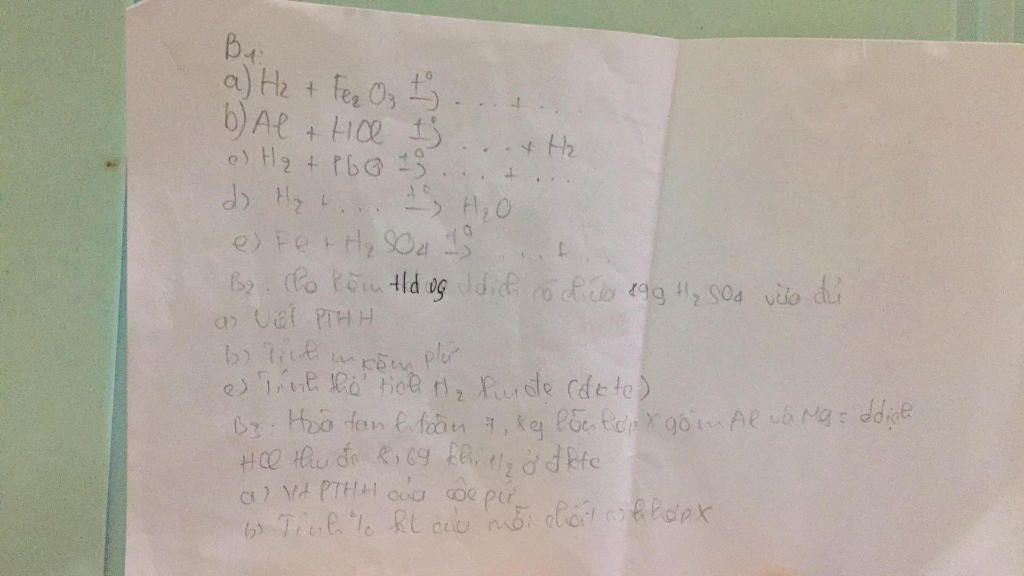 B1:
a) H2 + Fe2O3 t°→ ... + ...
b) Al + HCl t°→ ... + H2
c) H2 + PbO t°→ ... + ...
d) H2 + ... t°→ H2O
e) Fe + H2SO4 t°→ ... + ..
B2. Cho kẽm tác dụng ddịch có chứa 49g H2SO4 vừa đủ
a) Viết PTHH
b) Tính m kẽm pứ
c) Tính thể tích H2 thu đc (đktc)
B3. Hoà tan h toàn 7,8g hỗn hợp X gồm Al và Mg = ddịch
HCl thu đc 8,69 khí H2 ở đktc
a) Vt PTHH của các pứ
b) Tính % kl của mỗi chất hợp X